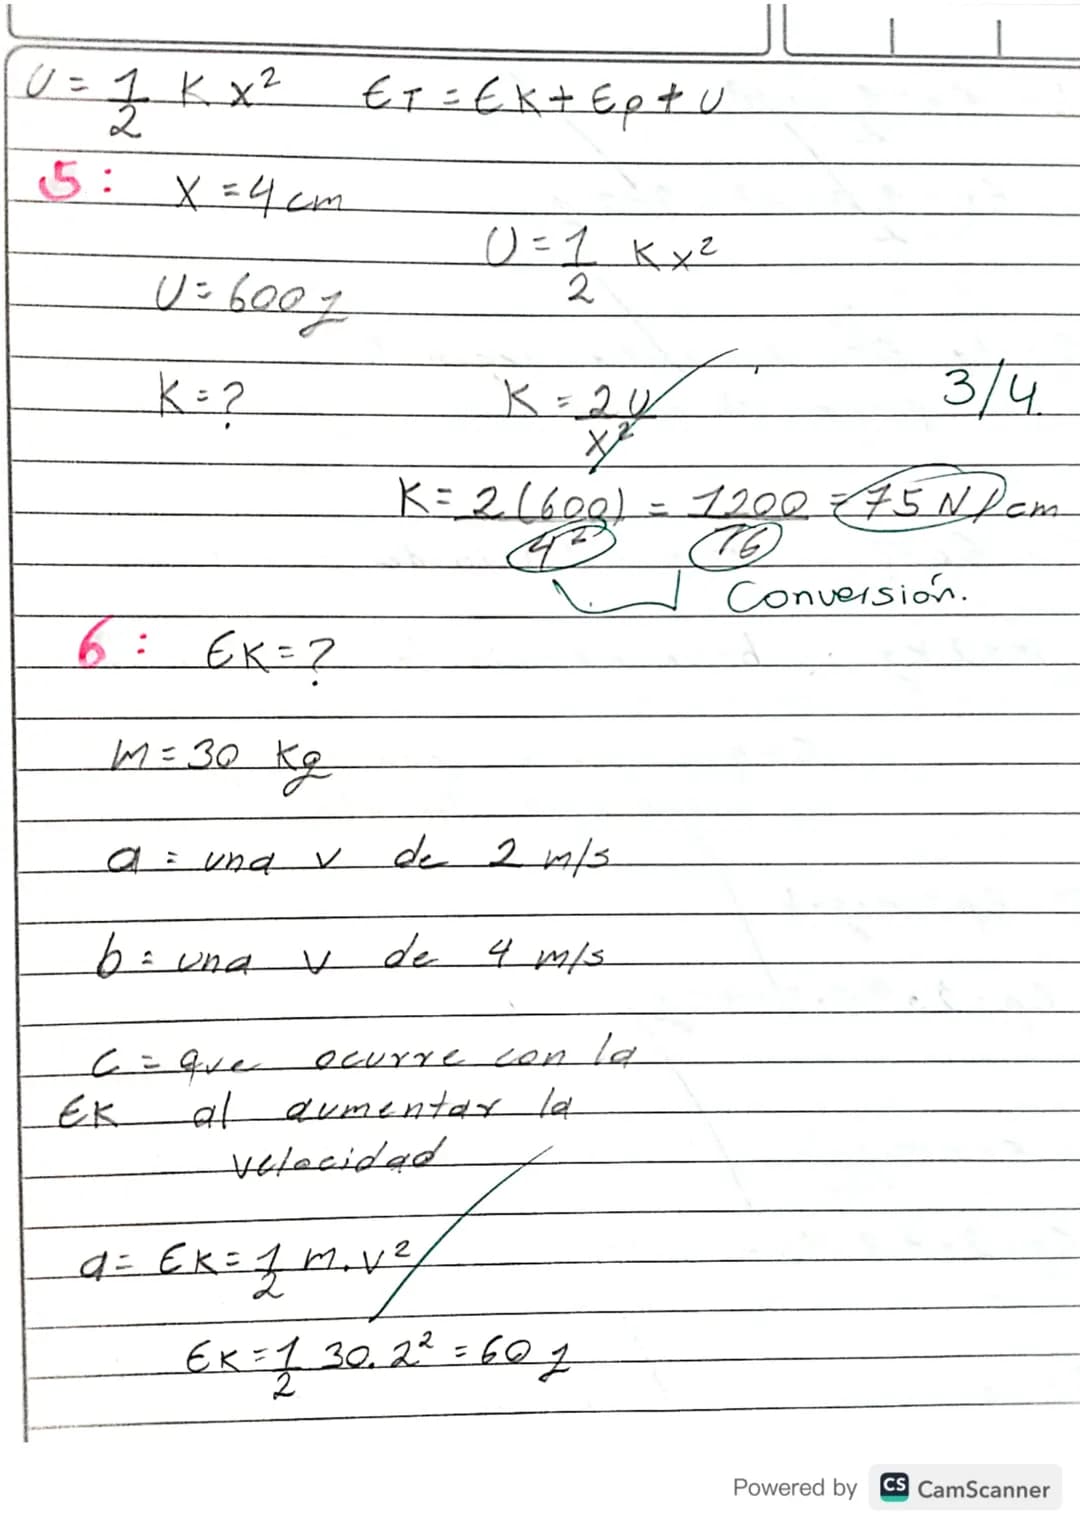 U = 1/2 K x² ET = EK + Ep + U
5: X = 4 cm
U = 1/2 K x²
U = 600 J
K = ?
K = 2U/x²
3/4
K = 2(600)/4² = 1200/16 = 75 N/cm
Conversión.
6: EK = ?
m = 30 kg
a = una v de 2 m/s
b = una v de 4 m/s
C = que ocurre con la
EK al aumentar la
velocidad
a = EK = 1/2 m.v²
EK = 1/2 30.2² = 60 J
Powered by CS CamScanner